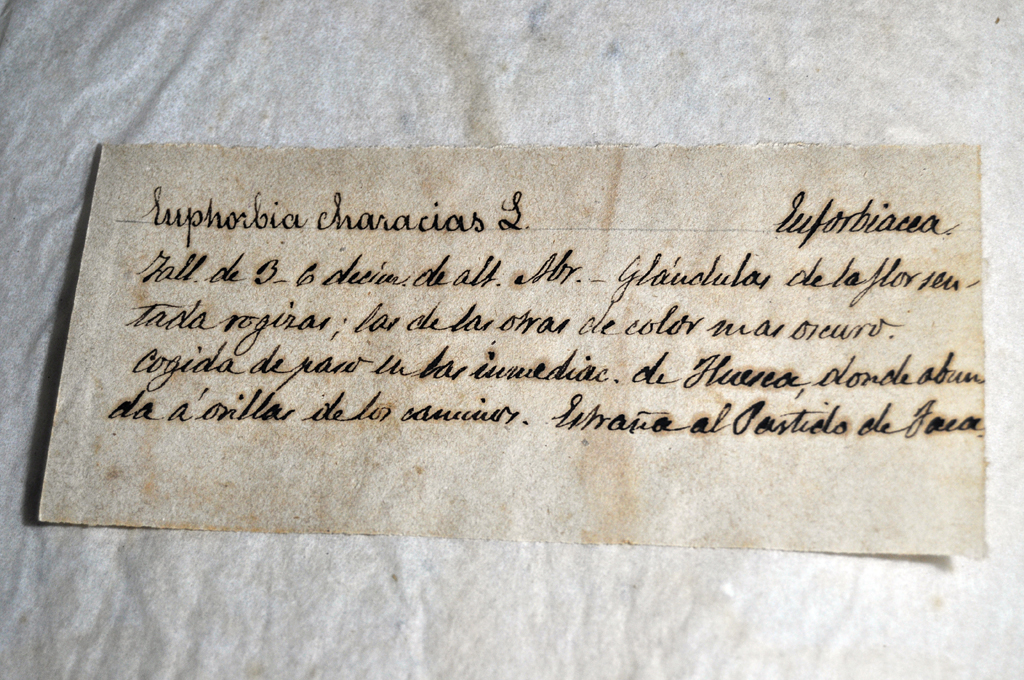 Euphorbia characias L. Euforbiacea.
Tall. de 3-6 decim. de alt. Abr. - Glándulas de la flor sen-
tada rogizas; las de las otras de color mas oscuro.
Cogida de paso en las inmediac. de Huesca, donde abun
da á orillas de los caminos. Estraña al Partido de Jaca.